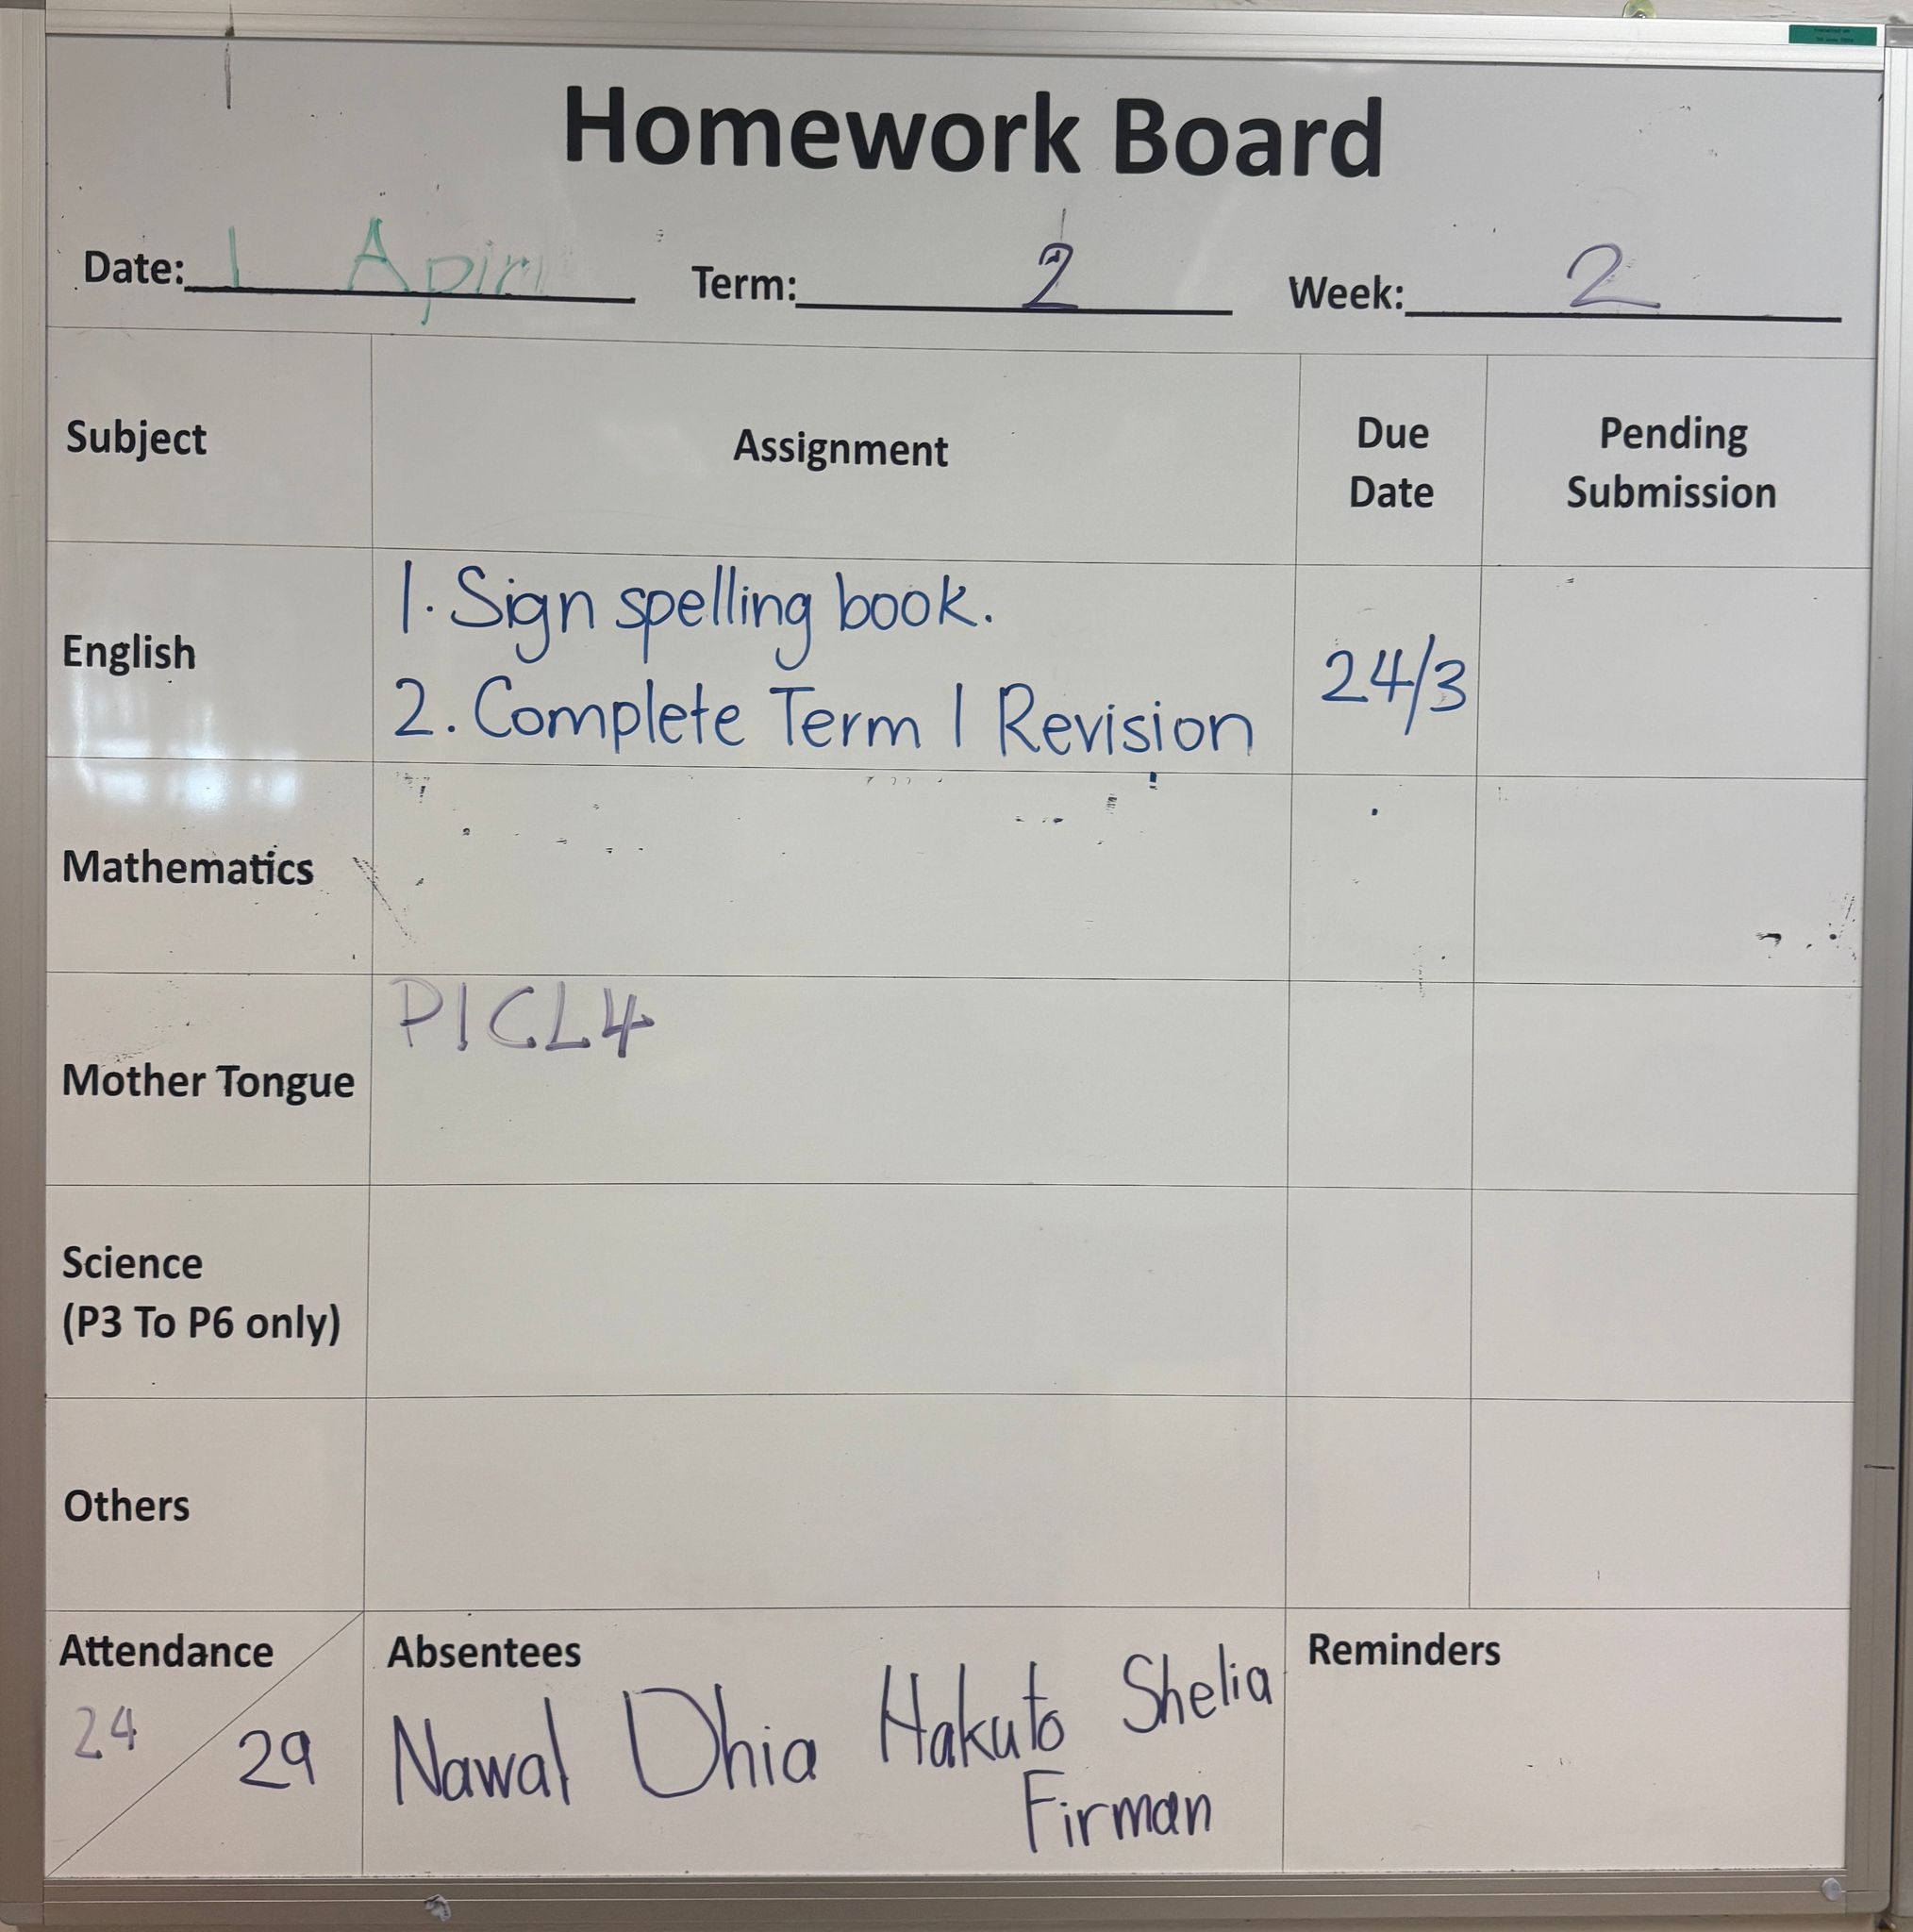 Homework Board
Date: 1 Apiril Term: 2 Week: 2
Subject Assignment Due Date Pending Submission
English
1. Sign spelling book.
2. Complete Term 1 Revision
24/3
Mathematics
Mother Tongue
P1CL4
Science
(P3 To P6 only)
Others
Attendance
24 / 29
Absentees
Nawal Dhia Hakuto Shelia
Firman
Reminders